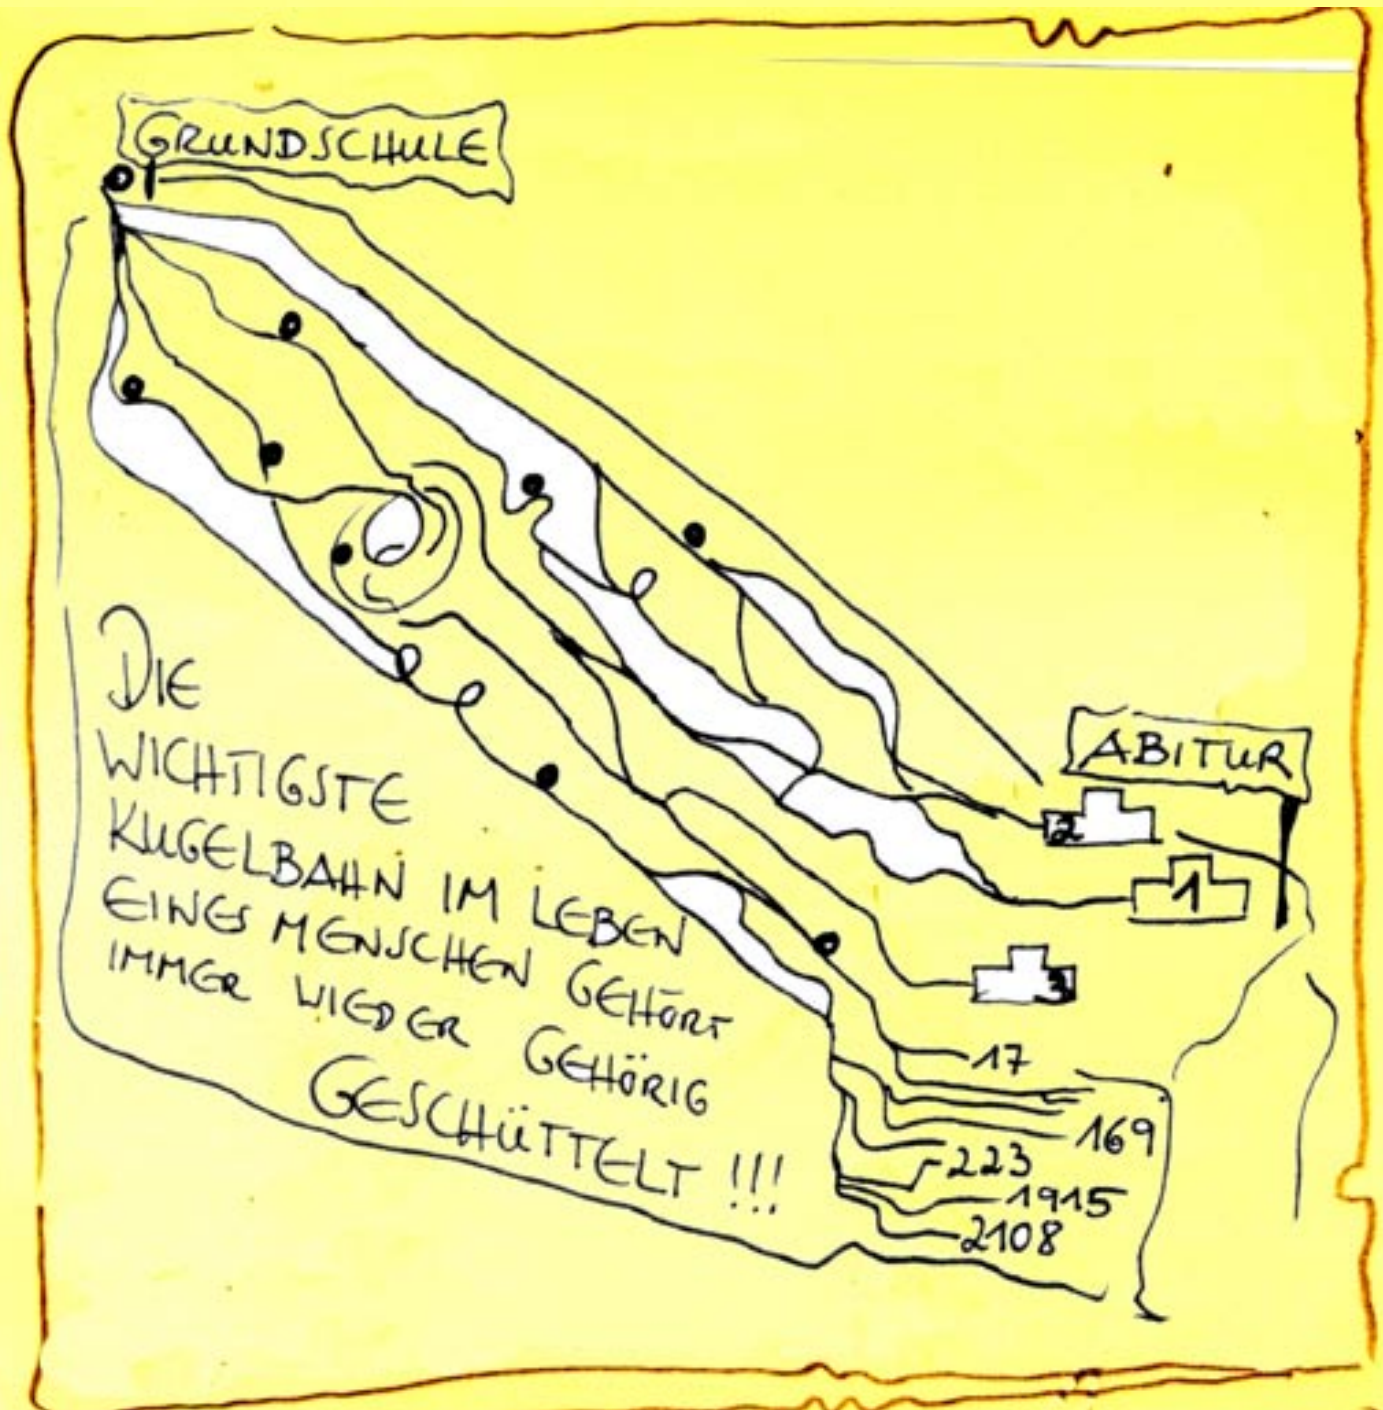 GRUNDSCHULE
ABITUR
2
1
3
17
169
223
1915
2108
DIE
WICHTIGSTE
KUGELBAHN IM LEBEN
EINES MENSCHEN GEHÖRT
IMMER WIEDER GEHÖRIG
GESCHÜTTELT !!!